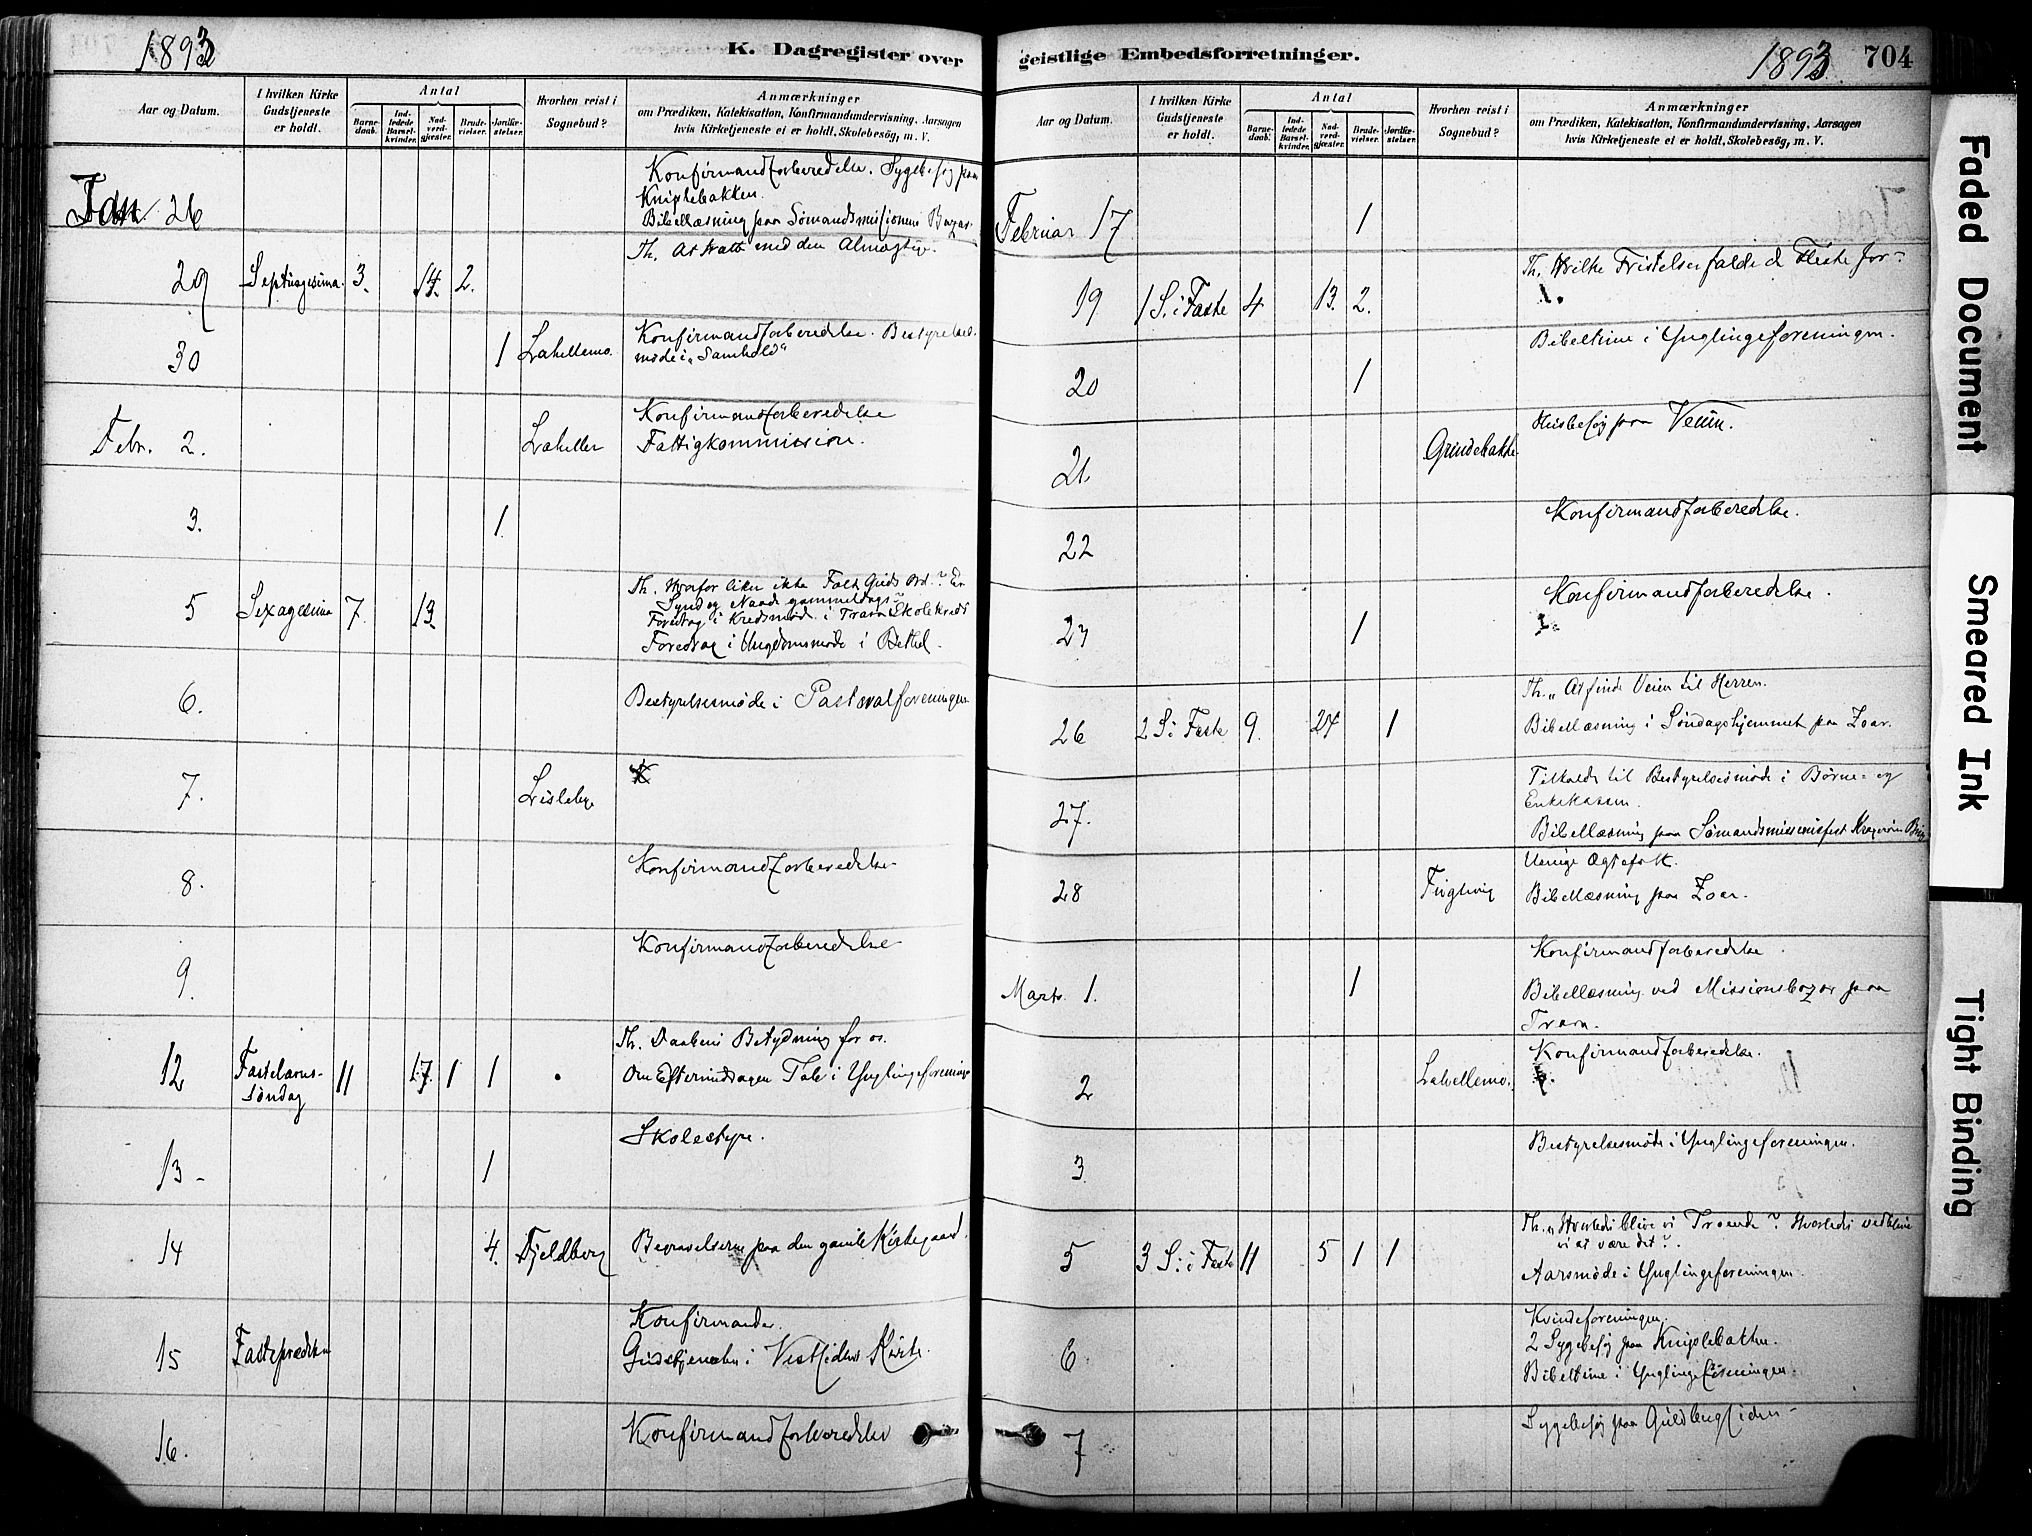 1893 K. Dagregister over
Aar og Datum.
I hvilken Kirke Gudstjeneste er holdt.
Antal
Barne-daab.
Ind-ledede Barsel-kvinder.
Nad-verd-gjæster.
Brude-vielser.
Jordfæ-stelser.
Hvorhen reist i Sognebud?
Anmærkninger
om Prædiken, Katekisation, Konfirmandundervisning, Aarsagen
hvis Kirketjeneste ei er holdt, Skolebesög, m. V.
Jan 26 Konfirmandforberedelse. Sygebesøg paa
Kniplebakken.
Bibellæsning paa Sømandsmissionens Bazar
29 Septuagesima. 3. 14. 2. Th. At trætte med den Almægtige.
30 1 Lahellemo. Konfirmandforberedelse. Bestyrelses-
møde i „Samhold“
Febr. 2. Lahellen Konfirmandforberedelse
Fattigkommission.
3. 1
5 Sexagesima 7. 13. Th. Hvorfor liker ikke Folk Guds Ord? Er
Synd og Naade gammeldags?
Foredrag i Kredsmøde i Trara Skolekreds
Foredrag i Ungdomsmøde i Bethel.
6. Bestyrelsesmøde i Pastoralforeningen
7. Lisleby
8. Konfirmandforberedelse
9. Konfirmandforberedelse
12 Fastelavns-søndag 11 17. 1 1 Th. Daabens Betydning for os.
Om Eftermiddagen Tale i Ynglingeforening
13 1 Skolestyre.
14 4. Fjeldberg Begravelserne paa den gamle Kirkegaard.
15 Fasteprædiken Konfirmander.
Gudstjenesten i Vestsidens Kirke.
16. Konfirmandforberedelse
geistlige Embedsforretninger. 1893 704
Aar og Datum.
I hvilken Kirke Gudstjeneste er holdt.
Antal
Barne-daab.
Ind-ledede Barsel-kvinder.
Nad-verd-gjæster.
Brude-vielser.
Jordfæ-stelser.
Hvorhen reist i Sognebud?
Anmærkninger
om Prædiken, Katekisation, Konfirmandundervisning, Aarsagen
hvis Kirketjeneste ei er holdt, Skolebesög, m. V.
Februar 17 1
19 1 S. i Faste 4 13. 2. Th. Hvilke Fristelser falde de Fleste for?
20 1 Bibeltime i Ynglingeforeningen.
21 Grundebakke Husbesøg paa Veum.
22 Konfirmandforberedelse.
23 1 Konfirmandforberedelse.
26 2 S. i Faste 9. 24 1 Th. „At finde Veien til Herren.
Bibellæsning i Søndagshjemmet paa Zoar.
27. Tilkaldt til Bestyrelsesmøde i Børne- og
Enkekassen.
Bibellæsning paa Sømandsmissionsfest
28 Fuglevig Uenige Ægtefolk.
Bibellæsning paa Zoar.
Marts 1. 1 Konfirmandforberedelse.
Bibellæsning ved Missionsbazar paa
Trara.
2 Lahellemo. Konfirmandforberedelse.
3 Bestyrelsesmøde i Ynglingeforeningen.
5 3 S. i Faste 11 5 1 1 Th. „Hvorledes blive vi Troende? Hvorledes vedblive
vi at være det?
Aarsmøde i Ynglingeforeningen.
6 Kvindeforeningen.
2 Sygebesøg paa Kniplebakken.
Bibeltime i Ynglingeforeningen
7 Sygebesøg paa Guldbergsiden
Faded Document
Smeared Ink
Tight Binding